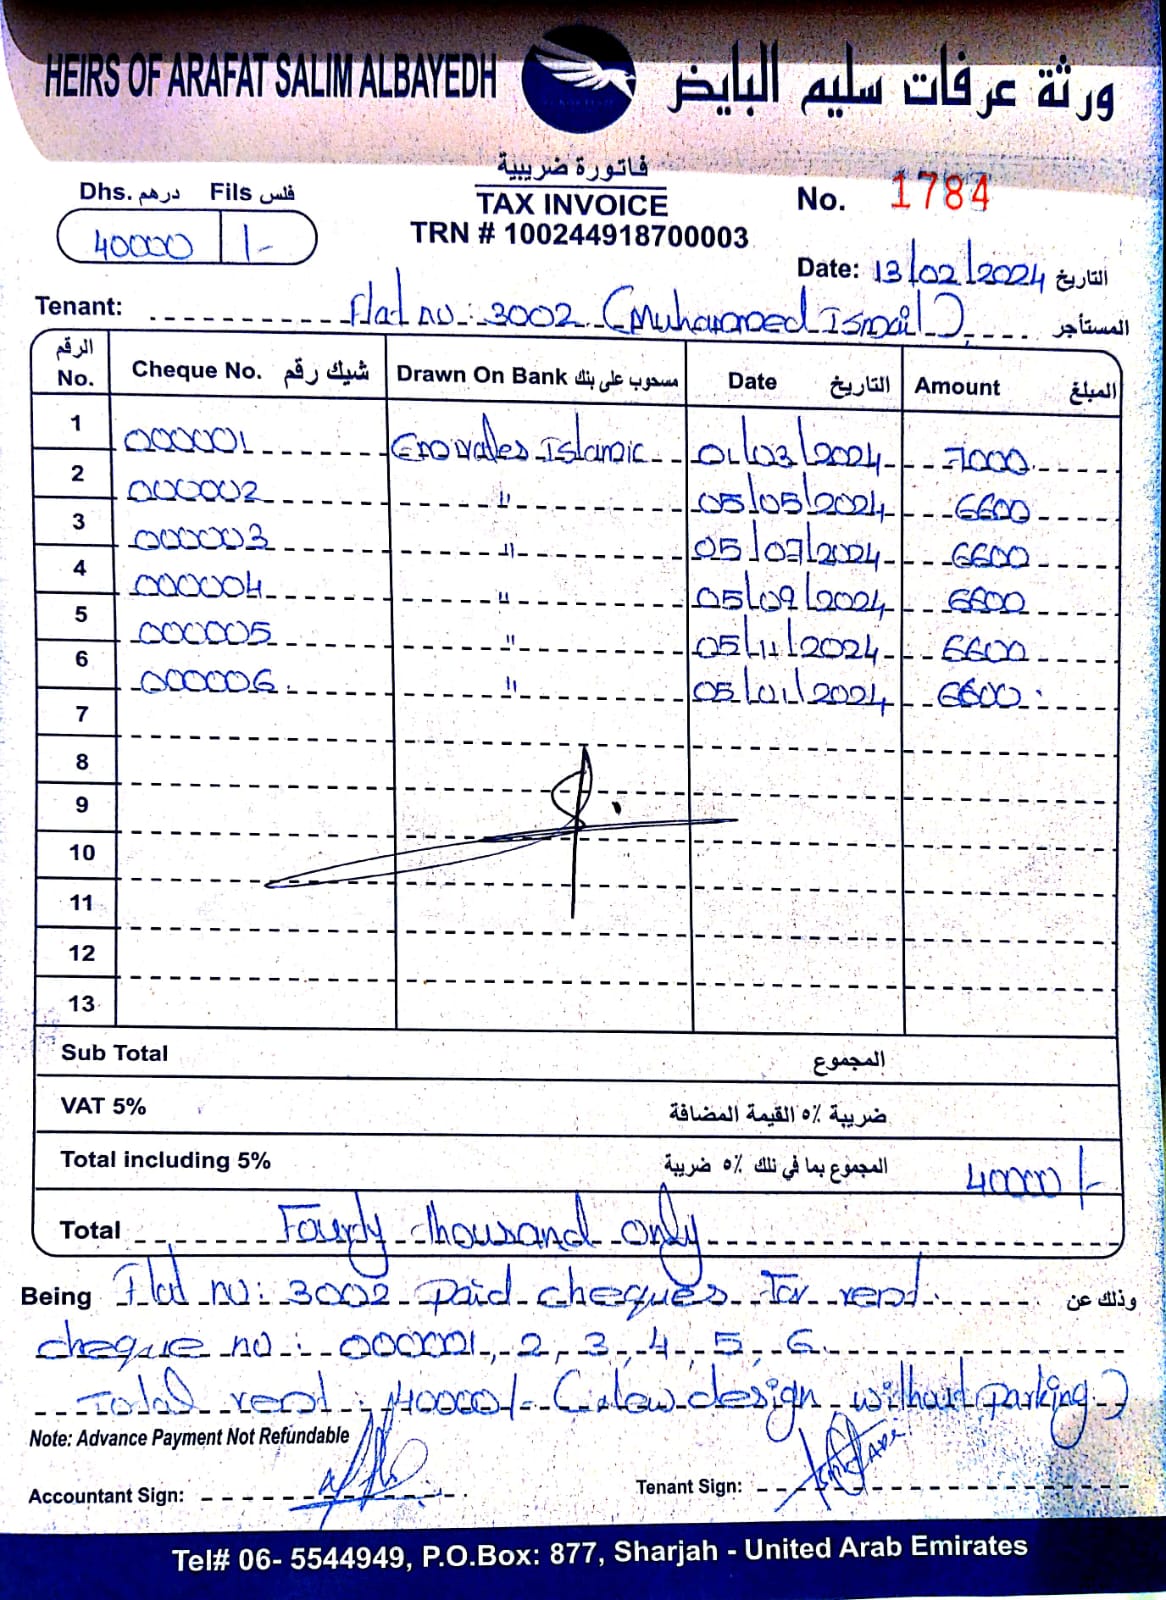 HEIRS OF ARAFAT SALIM ALBAYEDH ورثة عرفات سليم البايض
فاتورة ضريبية
TAX INVOICE
TRN # 100244918700003
Dhs. درهم Fils فلس
40000 /-
No. 1784
Date: 13/02/2024 التاريخ
Tenant: Flat no: 3002 (Muhammed Ismail) المستأجر
الرقم No. Cheque No. شيك رقم Drawn On Bank مسحوب على بنك Date التاريخ Amount المبلغ
1 000001 Emirates Islamic 01/03/2024 7000
2 000002 " 05/05/2024 6600
3 000003 " 05/07/2024 6600
4 000004 " 05/09/2024 6600
5 000005 " 05/11/2024 6600
6 000006 " 05/01/2024 6600
7
8
9
10
11
12
13
Sub Total المجموع
VAT 5% ضريبة ٥٪ القيمة المضافة
Total including 5% المجموع بما في ذلك ٥٪ ضريبة 40000/-
Total Fourty thousand only
Being Flat no: 3002 paid cheques for rent. وذلك عن
cheque no: 000001, 2, 3, 4, 5, 6
Total rent: 40000/- ( design without parking)
Note: Advance Payment Not Refundable
Accountant Sign: Tenant Sign:
Tel# 06- 5544949, P.O.Box: 877, Sharjah - United Arab Emirates